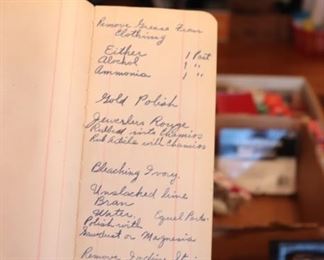 Remove Grease From
Clothing
Either 1 Part
Alcohol 1 "
Ammonia 1 "
Gold Polish
Jewerlers Rouge
Rubbed into Chamios
Rub Article with Chamios
Bleaching Ivory
Unslacked lime
Bran
Water, Equel Parts.
Polish with
Sawdust or Magnesia
Remove Iodine